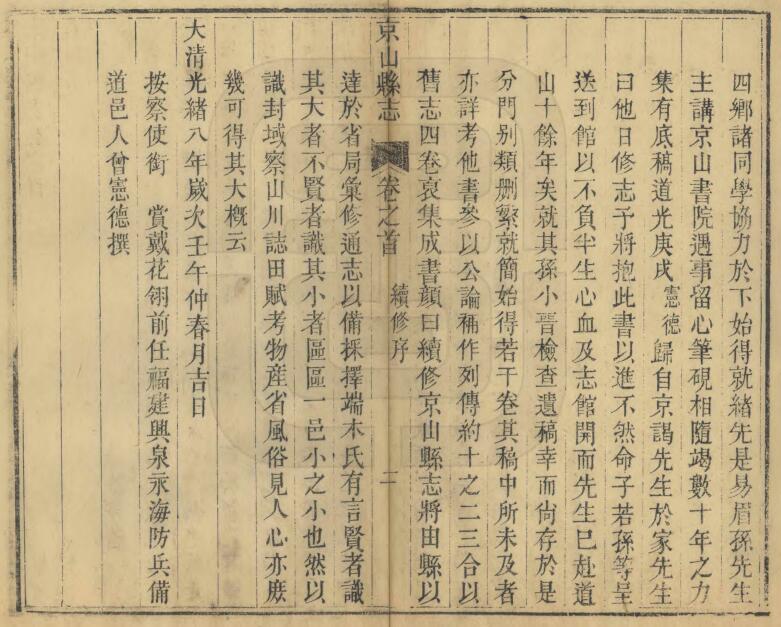 四鄉諸同學協力於下始得就緒先是易眉孫先生
主講京山書院遇事留心筆硯相隨竭數十年之力
集有底稿道光庚戌憲德歸自京謁先生於家先生
曰他日修志予將抱此書以進不然命子若孫等呈
送到館以不負半生心血及志館開而先生已赴道
山十餘年矣就其孫小晉檢查遺稿幸而尙存於是
分門別類刪繁就簡始得若干卷其稿中所未及者
亦詳考他書參以公論補作列傳約十之二三合以
舊志四卷裒集成書顏曰續修京山縣志將由縣以
京山縣志 卷之首 續修序 二
達於省局彙修通志以備採擇端木氏有言賢者識
其大者不賢者識其小者區區一邑小之小也然以
識封域察山川誌田賦考物產省風俗見人心亦庶
幾可得其大概云
大淸光緒八年歲次壬午仲春月吉日
按察使銜 賞戴花翎前任福建興泉永海防兵備
道邑人曾憲德撰